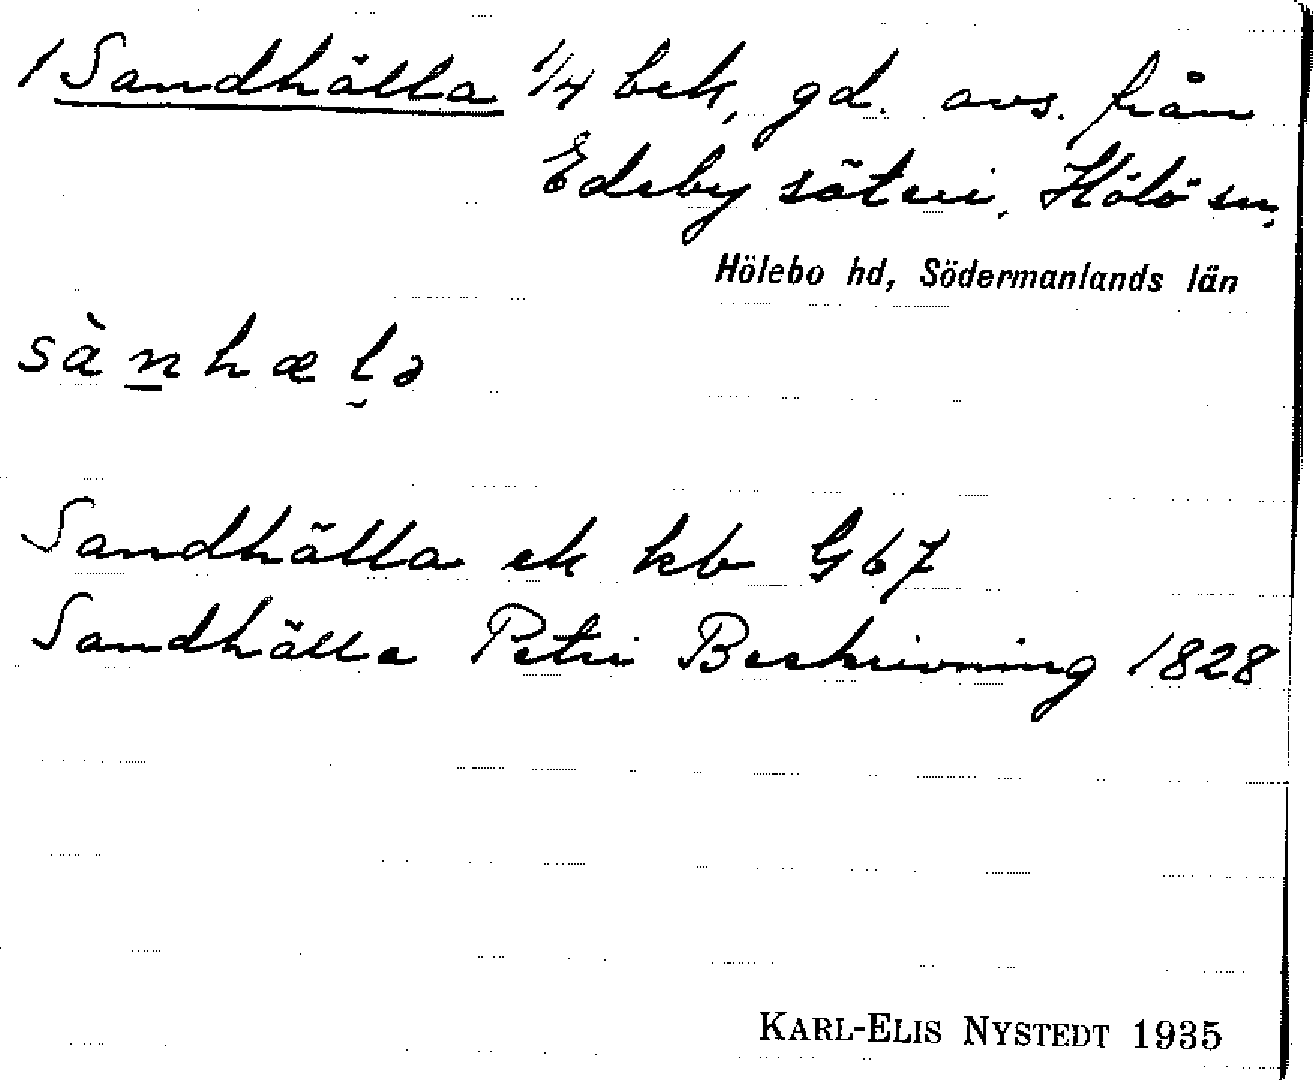 1 Sandhälla 1/4 bek, gd. avs. från
Edeby säteri, Hölö sn,
Hölebo hd, Södermanlands län
sàn̲hæl̮ə
Sandhälla ek kb G67
Sandhälla Petri Beskrivning 1828
KARL-ELIS NYSTEDT 1935